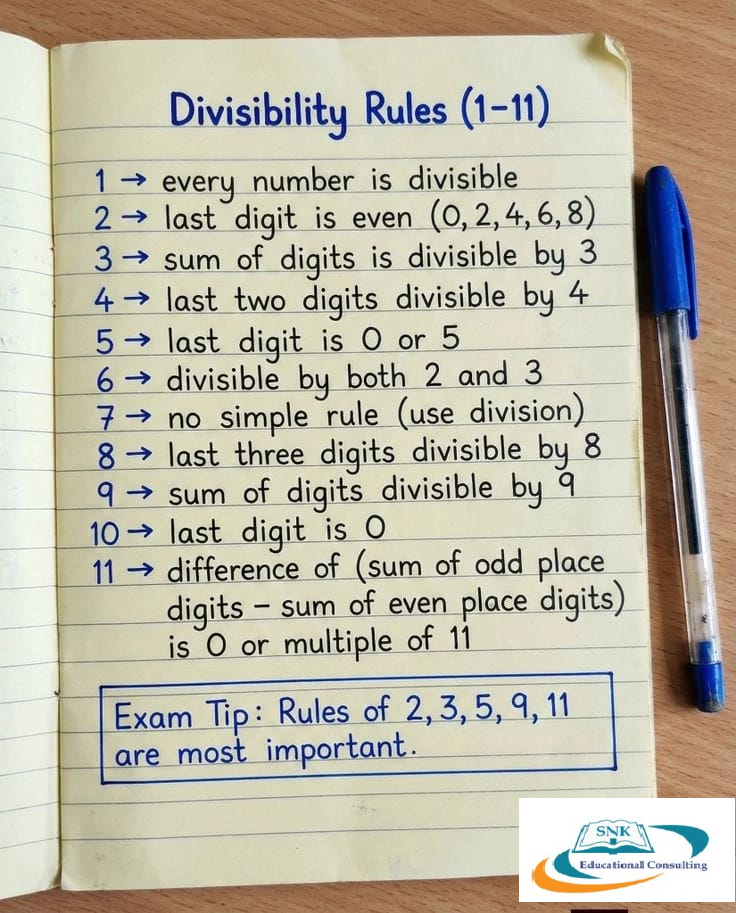 Divisibility Rules (1-11)
1 → every number is divisible
2 → last digit is even (0, 2, 4, 6, 8)
3 → sum of digits is divisible by 3
4 → last two digits divisible by 4
5 → last digit is 0 or 5
6 → divisible by both 2 and 3
7 → no simple rule (use division)
8 → last three digits divisible by 8
9 → sum of digits divisible by 9
10 → last digit is 0
11 → difference of (sum of odd place
digits – sum of even place digits)
is 0 or multiple of 11
Exam Tip: Rules of 2, 3, 5, 9, 11
are most important.
SNK
Educational Consulting